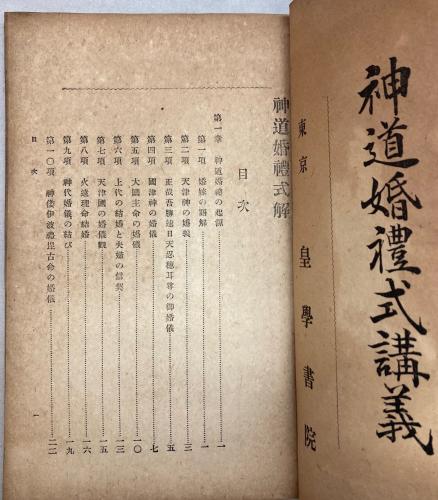 神道婚禮式講義
東京 皇學書院
神道婚禮式解
目次
第一章 神道婚禮の起源……一
第一項 婚嫁の語解……一
第二項 天津神の婚義……三
第三項 正哉吾勝速日天忍穗耳尊の御婚儀……五
第四項 國津神の婚儀……七
第五項 大國主命の婚儀……一〇
第六項 上代の結婚と夫婦の信契……一三
第七項 天津國の婚儀觀……一五
第八項 火遠理命結婚……一六
第九項 神代婚儀の結び……一九
第一〇項 神倭伊波禮毘古命の婚儀……二二
目次
一